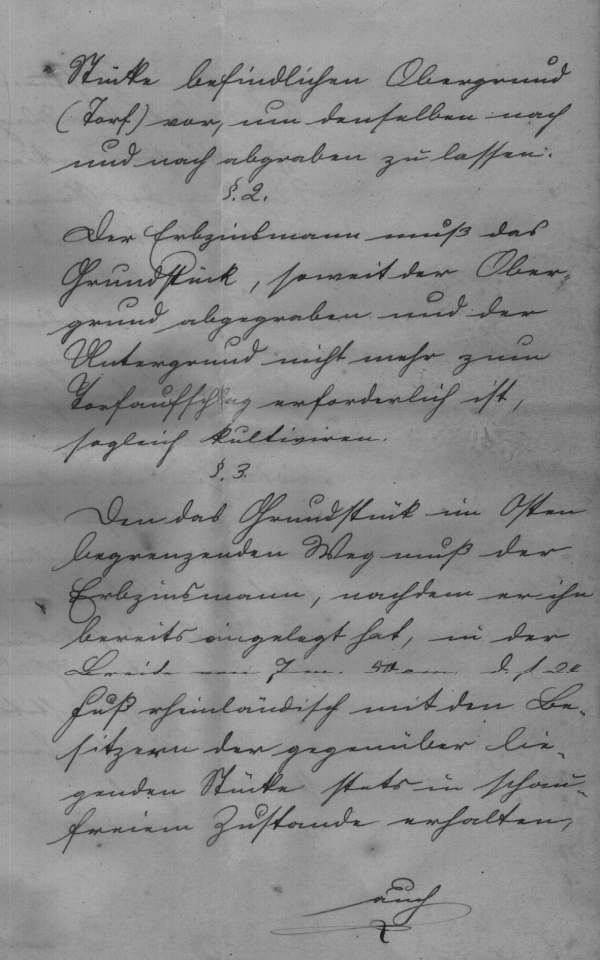 Stücke befindlichen Obergrund
(Torf) vor, um denselben nach
und nach abgraben zu lassen.
§. 2.
Der Erbzinsmann muß das
Grundstück, soweit der Ober-
grund abgegraben und der
Untergrund nicht mehr zum
Torfaufschlag erforderlich ist,
sogleich kultiviren.
§. 3.
Den das Grundstück im Osten
begrenzenden Weg muß der
Erbzinsmann, nachdem er ihn
bereits angelegt hat, in der
Breite von 7 m.
Fuß rheinländisch mit den Be-
sitzern der gegenüber lie-
genden Stücke stets in schau-
freiem Zustande erhalten,
auch